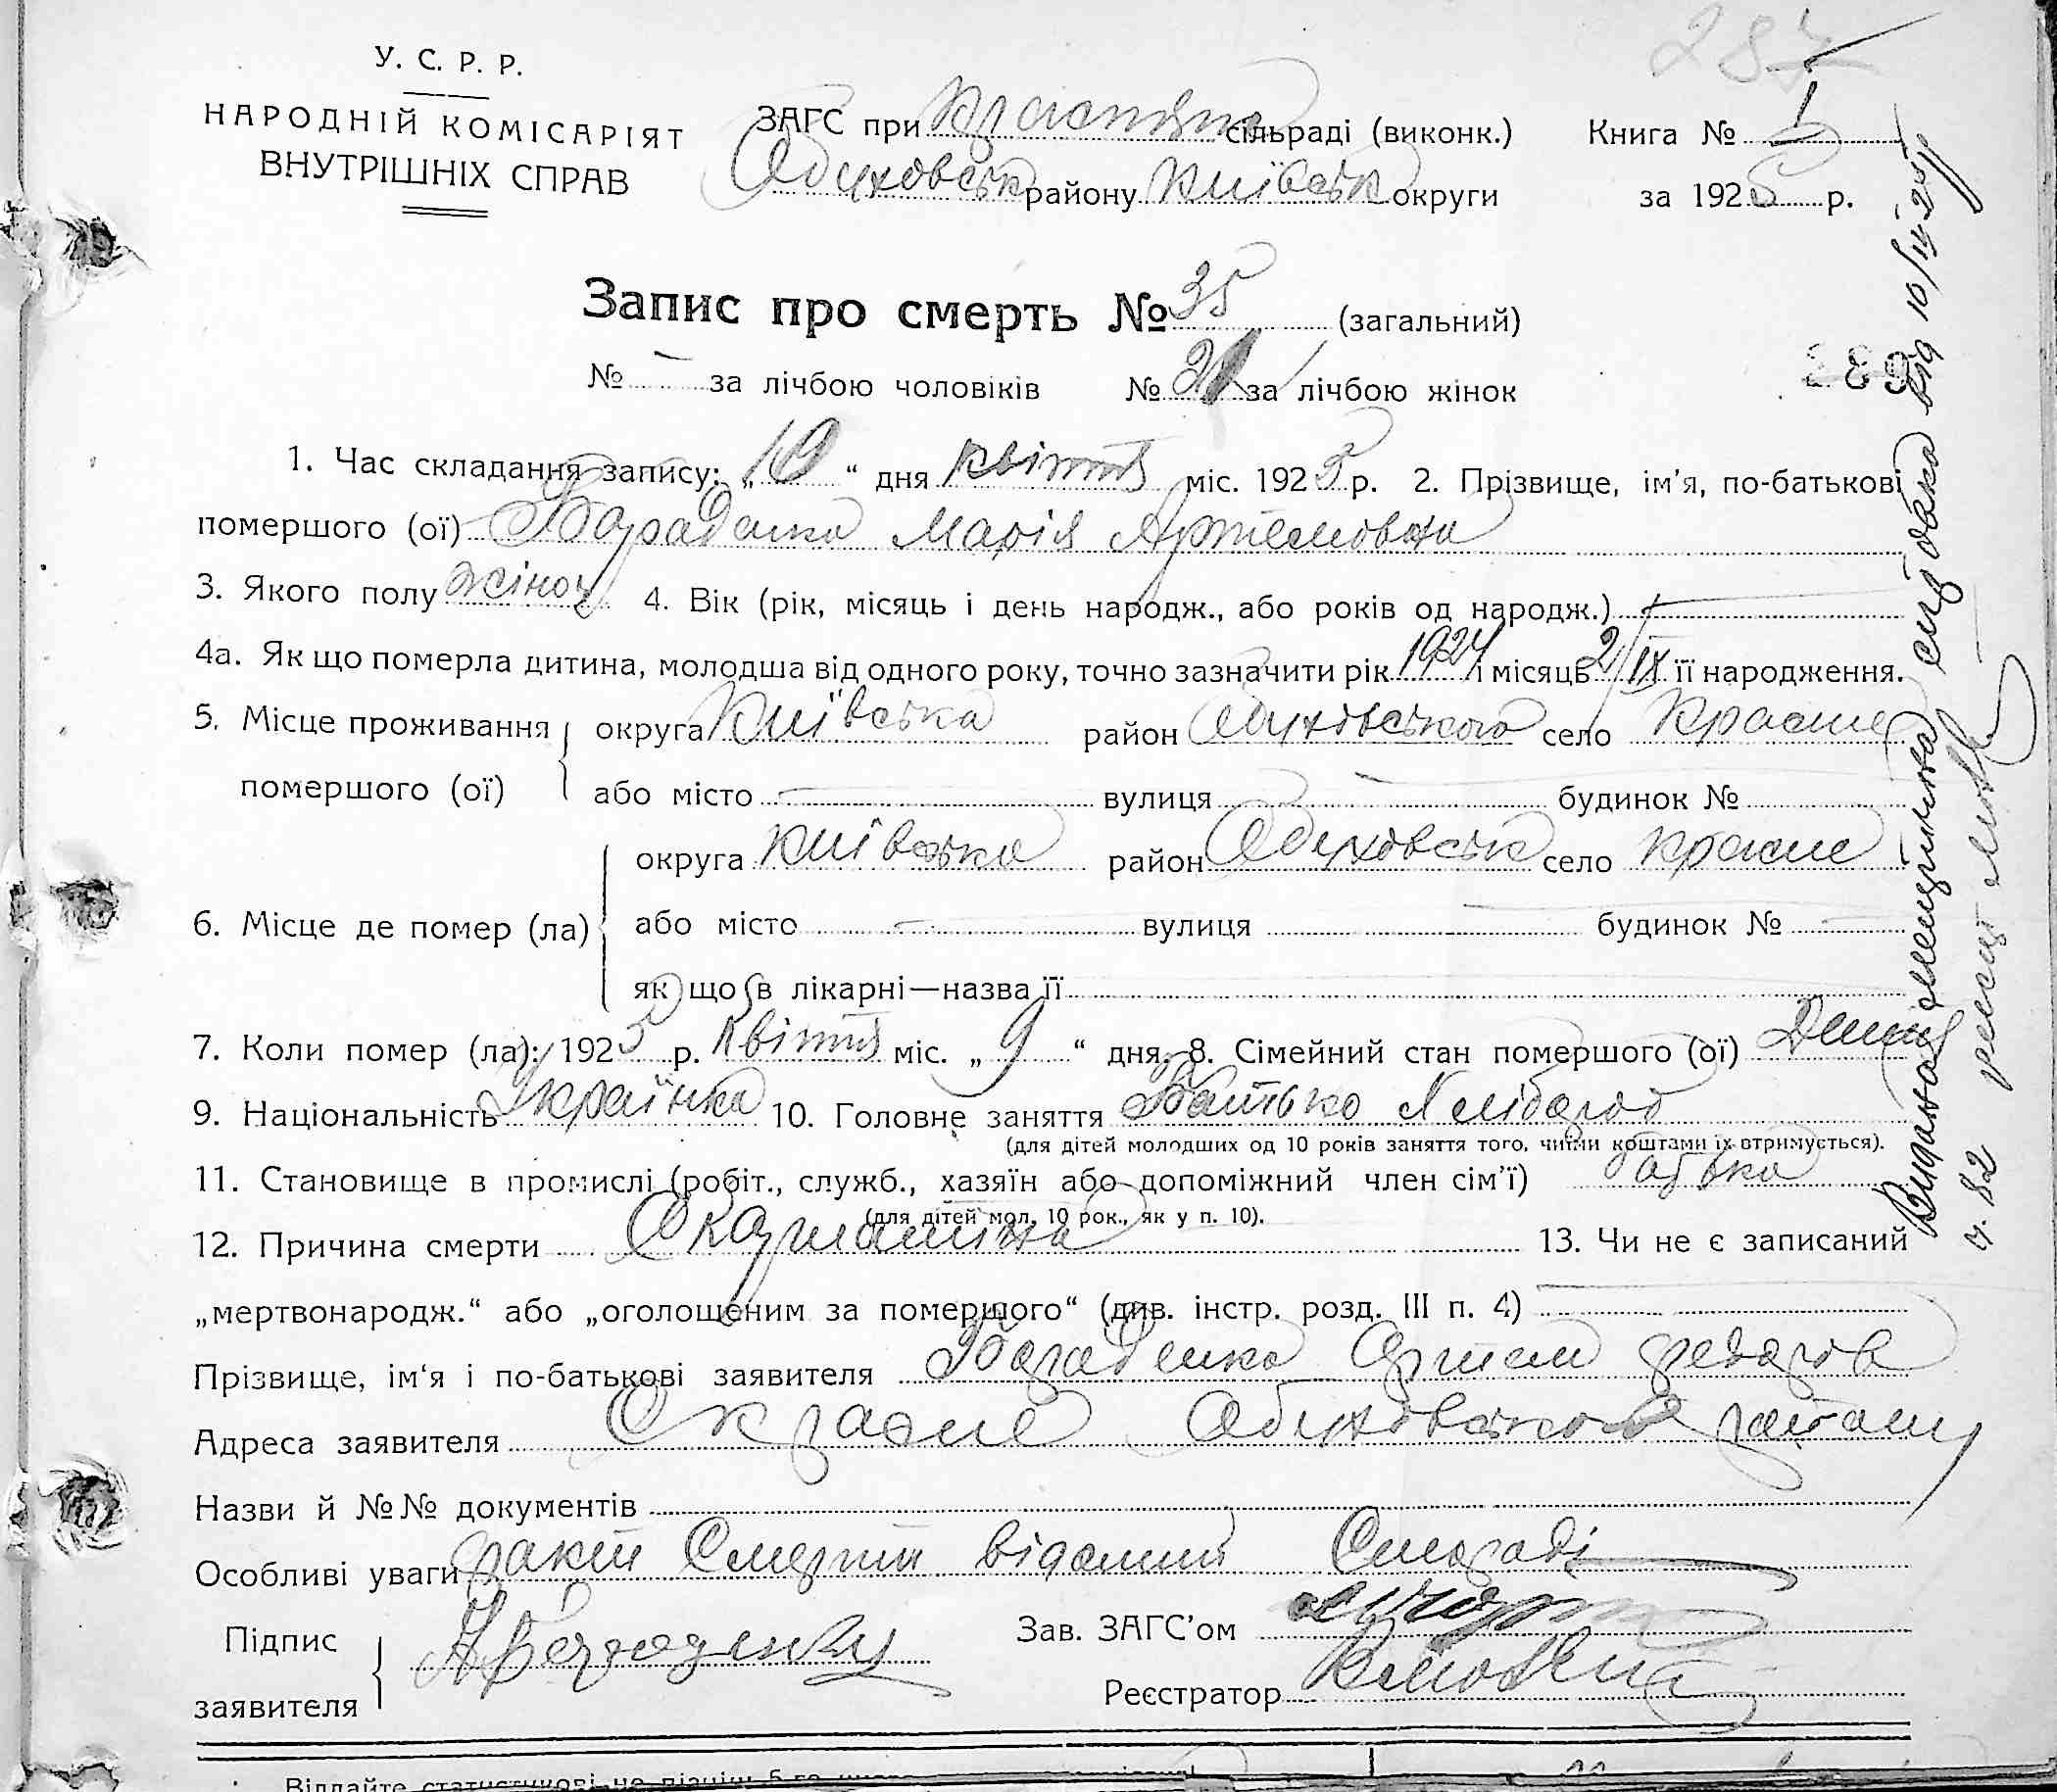 287
У. С. Р. Р.
НАРОДНІЙ КОМІСАРІЯТ
ВНУТРІШНІХ СПРАВ
ЗАГС при Краснян сільраді (виконк.) Книга № I
Обуховськ району Київськ округи за 1925 р.
Запис про смерть № 35 (загальний)
№ — за лічбою чоловіків № за лічбою жінок
289
1. Час складання запису: „10“ дня квітня міс. 1925 р. 2. Прізвище, ім'я, по-батькові
помершого (ої) Бараденко Марія Артемовна
3. Якого полу жіноч 4. Вік (рік, місяць і день народж., або років од народж.)
4а. Як що померла дитина, молодша від одного року, точно зазначити рік 1924 і місяць 2/IX її народження.
5. Місце проживання округа Київська район Обуховського село Красне
помершого (ої) або місто вулиця будинок №
округа Київська район Обуховськ село Красне
6. Місце де помер (ла) або місто вулиця будинок №
як що в лікарні—назва її
7. Коли помер (ла): 1925 р. квітня міс. „9“ дня. 8. Сімейний стан помершого (ої)
9. Національність Українка 10. Головне заняття Батько Хлібороб
(для дітей молодших од 10 років заняття того, чиїми коштами їх отримується).
11. Становище в промислі (робіт., служб., хазяїн або допоміжний член сім'ї) батька
(для дітей мол. 10 рок., як у п. 10).
12. Причина смерти Скарлатина 13. Чи не є записаний
„мертвонародж.“ або „оголошеним за помершого“ (див. інстр. розд. III п. 4)
Прізвище, ім'я і по-батькові заявителя Бараденко Артем Федоров
Адреса заявителя С Красне Обуховського району
Назви й №№ документів
Особливі уваги факт Смерти відомий Сильраді
Підпис Зав. ЗАГС'ом
заявителя Реєстратор
Видана виписка від 10/IV 25 р
ч. 82